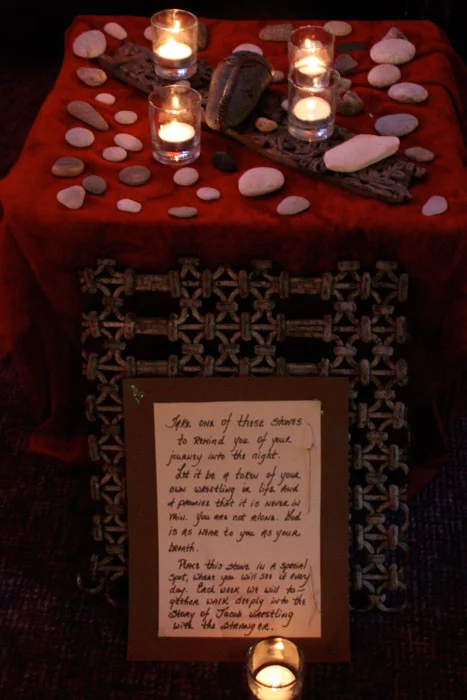 Take one of these stones
to remind you of your
journey into the night.
Let it be a token of your
own wrestling in life. And
a promise that it is never in
vain. You are not alone. God
is as near to you as your
breath.
Place this stone in a special
spot, where you will see it every
day. Each week we will to-
gether walk deeply into the
story of Jacob wrestling
with the Stranger.